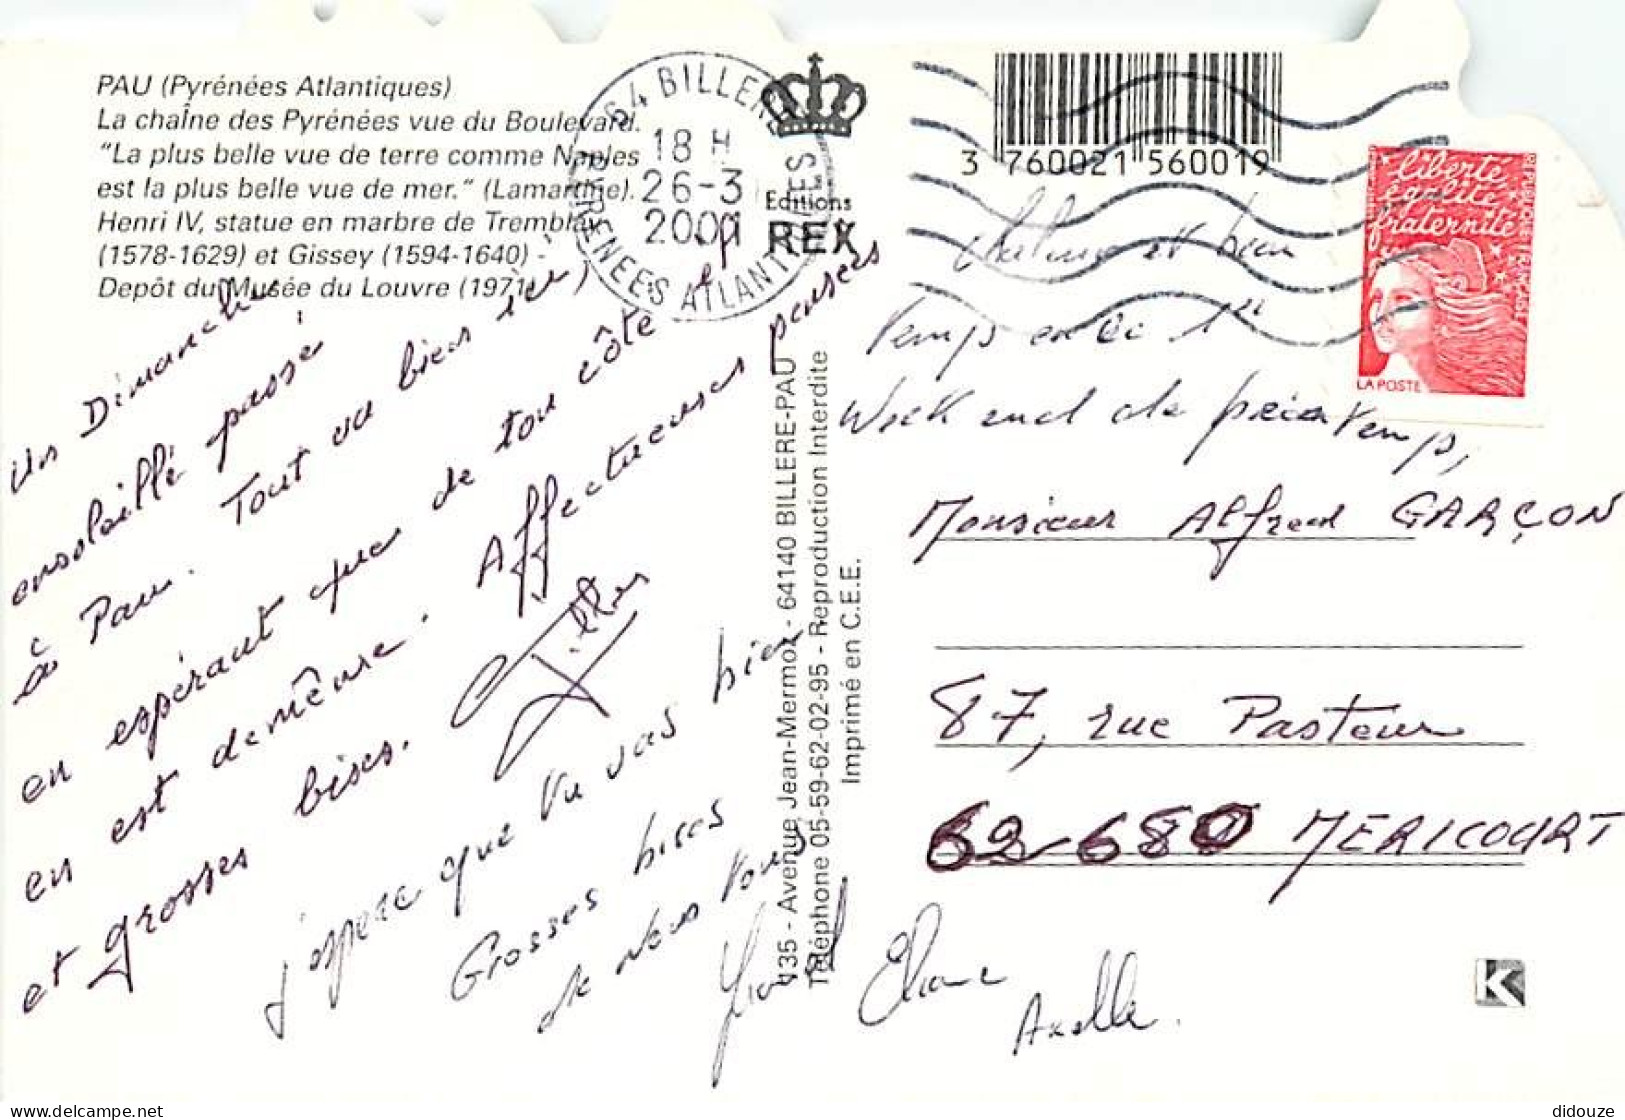 PAU (Pyrénées Atlantiques)
La chaîne des Pyrénées vue du Boulevard.
"La plus belle vue de terre comme Naples
est la plus belle vue de mer." (Lamartine).
Henri IV, statue en marbre de Tremblay
(1578-1629) et Gissey (1594-1640) -
Depôt du Musée du Louvre (1971)
64 BILLERE
18 H
26-3
2001
PYRENEES ATLANTIQUES
Editions
REX
3 760021 560019
liberté
égalité
fraternité
REPUBLIQUE FRANÇAISE
LA POSTE
Un Dimanche
ensoleillé passé
à Pau. Tout va bien ici,
en espérant que de ton côté
en est de même. Affectueuses pensées
et grosses bises. Gilles
j'espere que tu vas bien
Grosses bises
de nous tous
135 - Avenue Jean-Mermoz - 64140 BILLERE-PAU
Téléphone 05-59-62-02-95 - Reproduction Interdite
Imprimé en C.E.E.
et bien
temps en ce 1er
Week end de printemps,
Monsieur Alfred GARÇON
87, rue Pasteur
62 680 MERICOURT
Eliane
Axelle.
K
delcampe.net
didouze